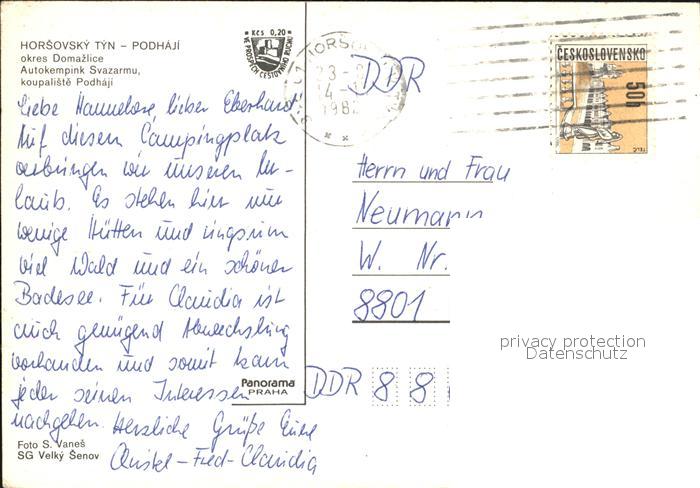 HORŠOVSKÝ TÝN – PODHÁJÍ
okres Domažlice
Autokempink Svazarmu,
koupaliště Podhájí
Liebe Hannelore, lieber Eberhard!
Auf diesem Campingplatz
verbringen wir unseren Ur-
laub. Es stehen hier nur
wenige Hütten und ringsum
viel Wald und ein schöner
Badesee. Für Claudia ist
auch genügend Abwechslung
vorhanden und somit kann
jeder seinen Interessen
nachgehen. Herzliche Grüße Eure
Christel-Fred-Claudia
Foto S. Vaneš
SG Velký Šenov
Panorama
PRAHA
Kčs 0,20
VE PROSPĚCH CESTOVNÍHO RUCHU
1982
ČESKOSLOVENSKO
50h
TELČ
DDR
Herrn und Frau
Neumann
W. Nr.
8801
DDR 8 8
privacy protection
Datenschutz